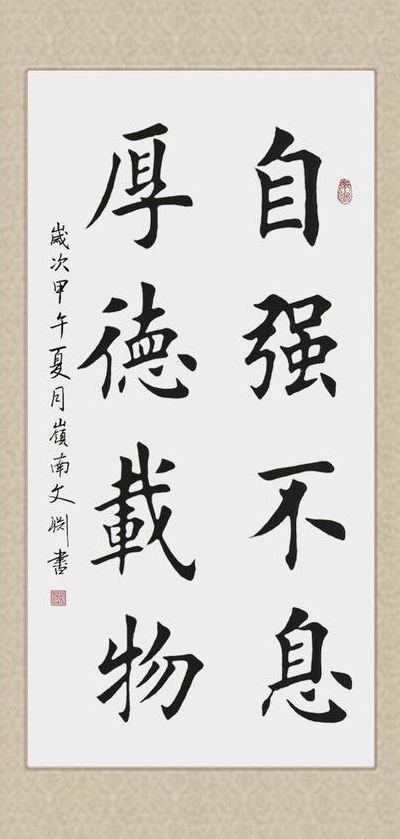 自强不息
厚德載物
歲次甲午夏月嶺南文書